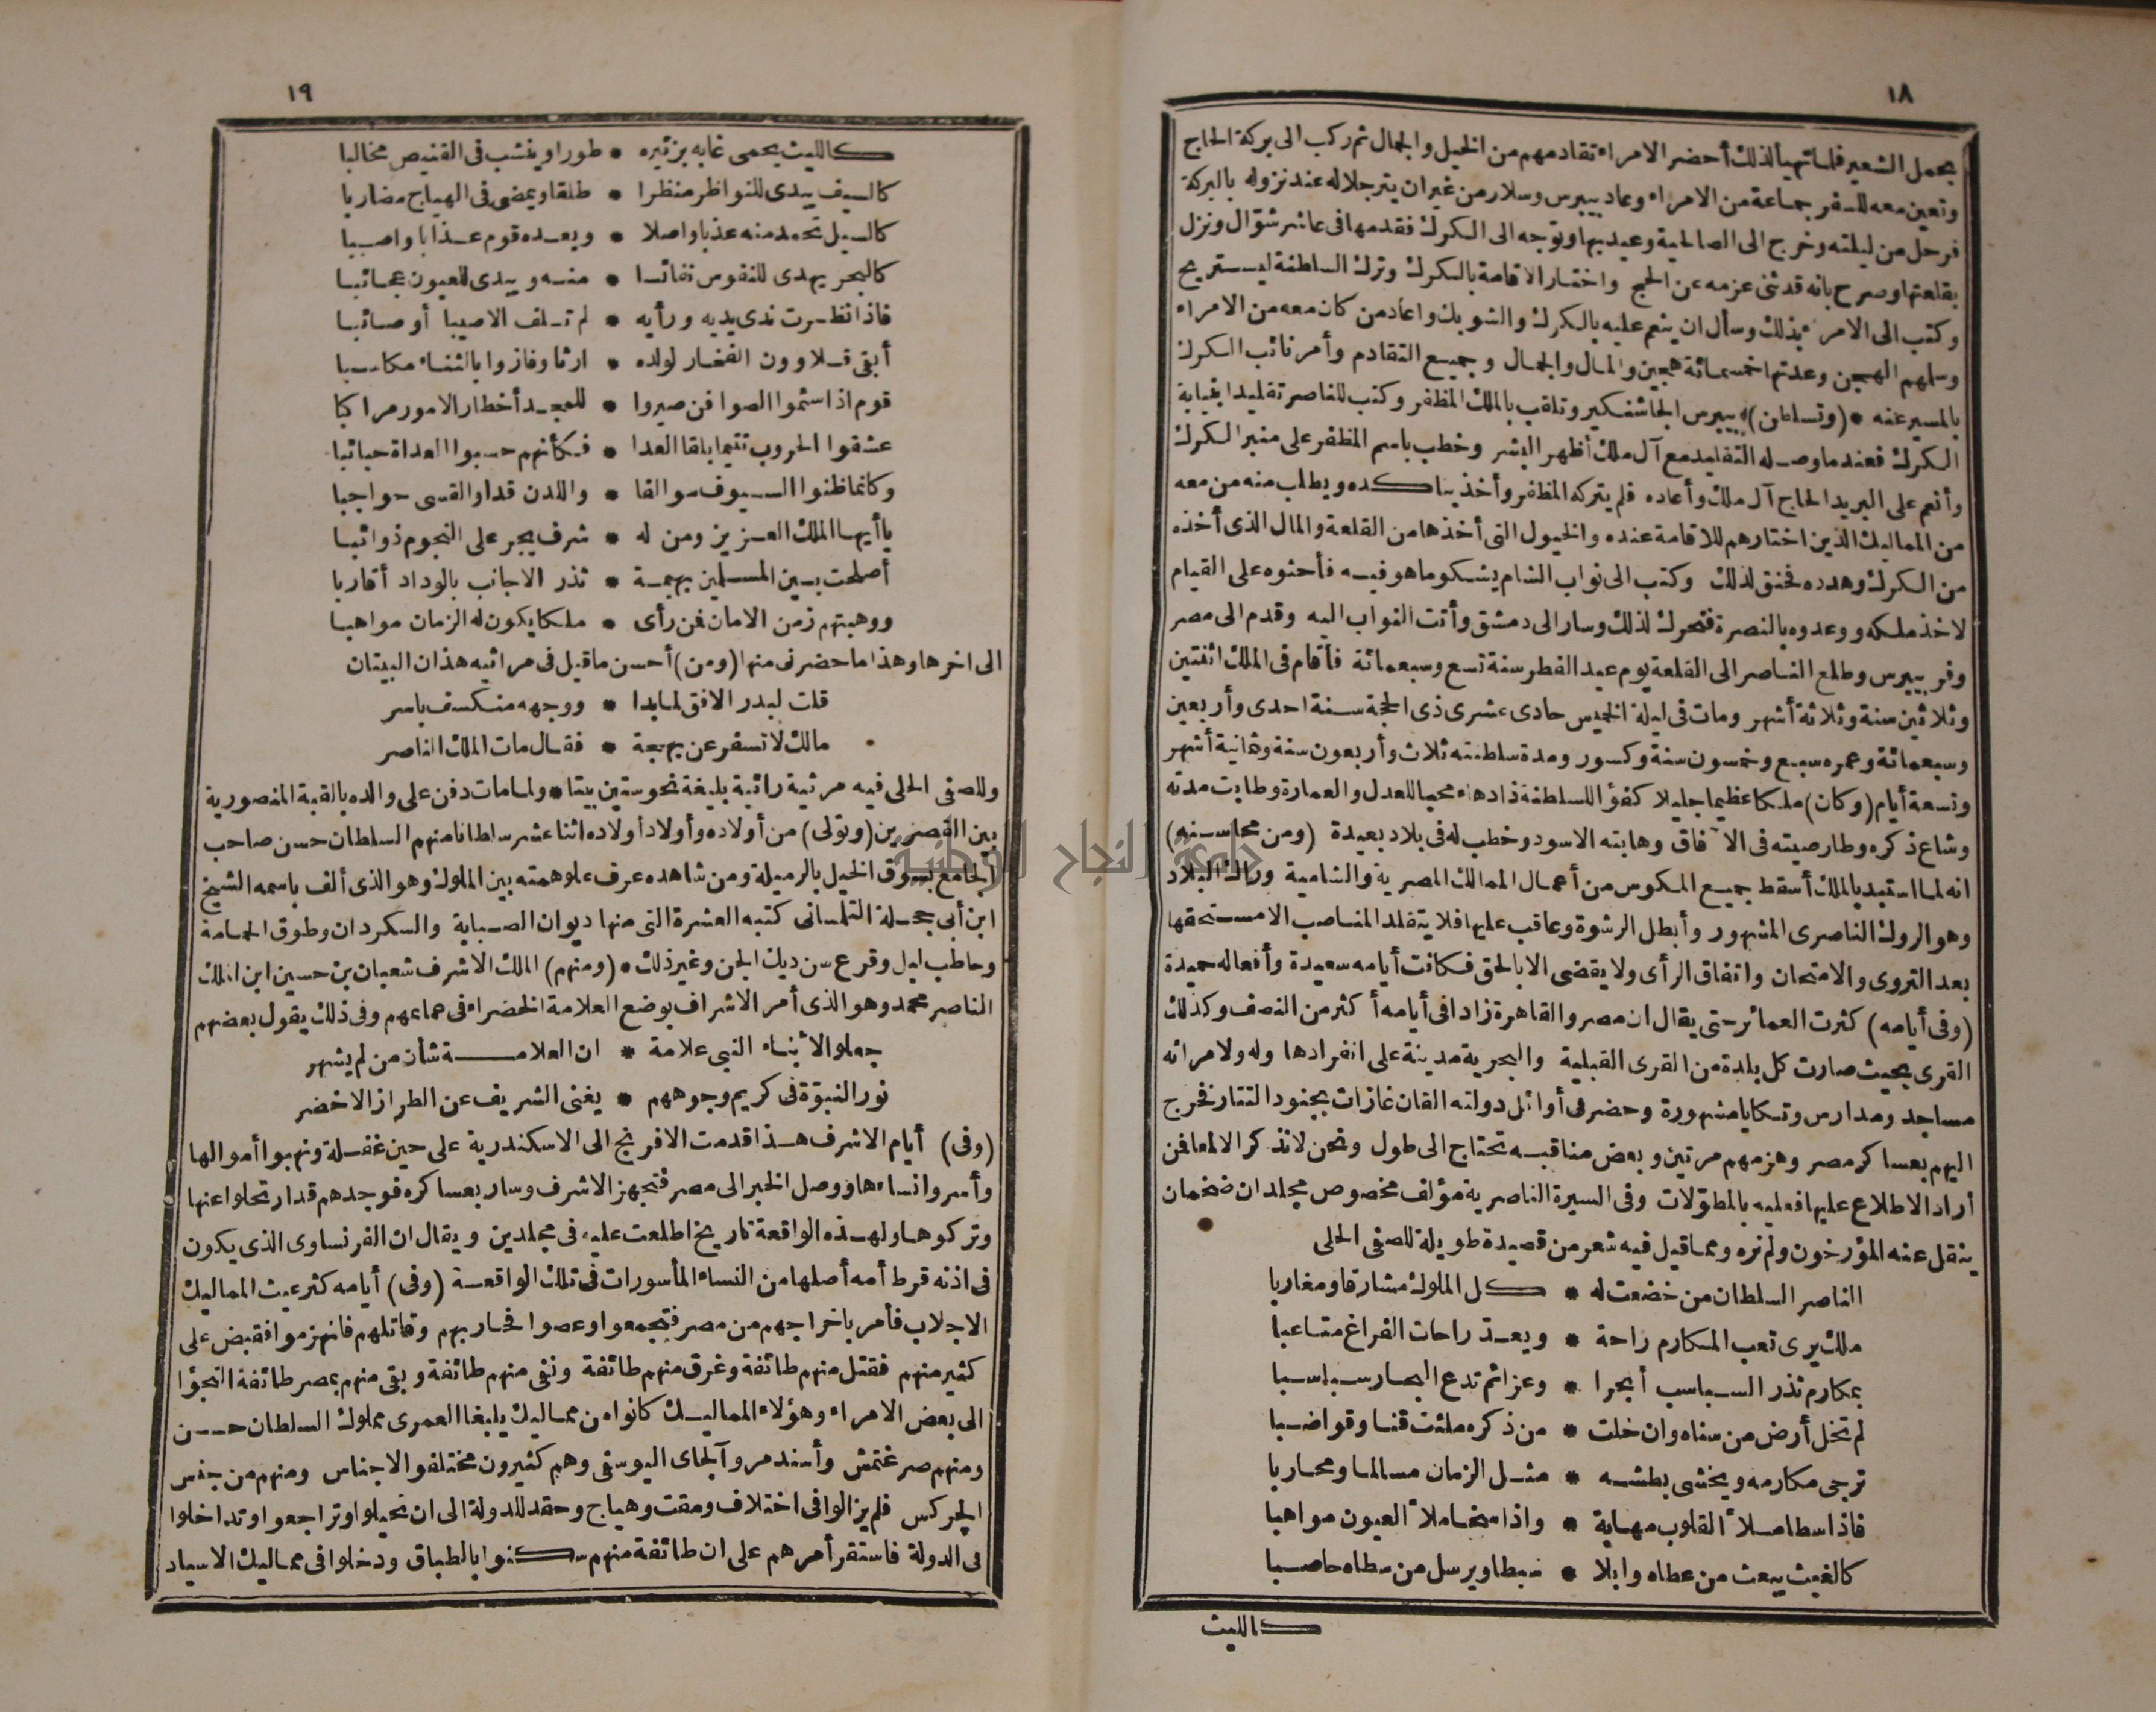 ١٨
بحمل الشعير فلما تهيأ لذلك أحضر الامراء تقادمهم من الخيل والجمال ثم ركب الى بركة الحاج
وتعين معه للسفر جماعة من الامراء وعاد بيبرس وسلار من غير ان يترجلا له عند نزوله بالبركة
فرحل من ليلته وخرج الى الصالحية وعيد بها وتوجه الى الكرك فقدمها فى عاشر شوّال ونزل
بقلعتها وصرح بانه قد ثنى عزمه عن الحج واختار الاقامة بالكرك وترك السلطنة ليستريح
وكتب الى الامراء بذلك وسأل ان ينعم عليه بالكرك والشوبك واعاد من كان معه من الامراء
وسلمهم الهجن وعدتها خمسمائة هجين والمال والجمال وجميع التقادم وأمر نائب الكرك
بالمسير عنه * (وتسلطن) بيبرس الجاشنكير وتلقب بالملك المظفر وكتب للناصر تقليدا بنيابة
الكرك فعندما وصله التقليد مع آل ملك أظهر البشر وخطب باسم المظفر على منبر الكرك
وأنعم على البريد الحاج آل ملك وأعاده فلم يتركه المظفر وأخذ يناكده ويطلب منه من معه
من المماليك الذين اختارهم للاقامة عنده والخيول التى أخذها من القلعة والمال الذى أخذه
من الكرك وهدده فحنق لذلك وكتب الى نواب الشام يشكو ما هو فيه فأحثوه على القيام
لاخذ ملكه ووعدوه بالنصرة فتحرك لذلك وسار الى دمشق وأتت النواب اليه وقدم الى مصر
وفر بيبرس وطلع الناصر الى القلعة يوم عيد الفطر سنة تسع وسبعمائة فأقام فى الملك اثنتين
وثلاثين سنة وثلاثة أشهر ومات فى ليلة الخميس حادى عشرى ذى الحجة سنة احدى وأربعين
وسبعمائة وعمره سبع وخمسون سنة وكسور ومدة سلطنته ثلاث وأربعون سنة وثمانية أشهر
وتسعة أيام (وكان) ملكا عظيما جليلا كفؤا للسلطنة ذا دهاء محبا للعدل والعمارة وطابت مدته
وشاع ذكره وطار صيته فى الآفاق وهابته الاسود وخطب له فى بلاد بعيدة (ومن محاسنه)
انه لما استبد بالملك أسقط جميع المكوس من أعمال الممالك المصرية والشامية وراك البلاد
وهو الروك الناصرى المشهور وأبطل الرشوة وعاقب عليها فلا يتقلد المناصب الا مستحقها
بعد التروى والامتحان واتفاق الرأى ولا يقضى الا بالحق فكانت أيامه سعيدة وأفعاله حميدة
(وفى أيامه) كثرت العمائر حتى يقال ان مصر والقاهرة زادا فى أيامه أكثر من النصف وكذلك
القرى بحيث صارت كل بلدة من القرى القبلية والبحرية مدينة على انفرادها وله ولامرائه
مساجد ومدارس وتكايا مشهورة وحضر فى أوائل دولته القان غازان بجنود التتار فخرج
اليهم بعساكر مصر وهزمهم مرتين وبعض مناقبه تحتاج الى طول ونحن لا نذكر الا لمعا فمن
أراد الاطلاع عليها فعليه بالمطوّلات وفى السيرة الناصرية مؤلف مخصوص مجلدان ضخمان
ينقل عنه المؤرخون ولم نره ومما قيل فيه شعر من قصيدة طويلة للصفى الحلى
الناصر السلطان من خضعت له * كل الملوك مشارقا ومغاربا
ملك يرى تعب المكارم راحة * ويعد راحات الفراغ متاعبا
بمكارم تذر السباسب أبحرا * وعزائم تدع البحار سباسبا
لم تخل أرض من سناه وان خلت * من ذكره ملئت قنا وقواضبا
ترجى مكارمه ويخشى بطشه * مثل الزمان مسالما ومحاربا
فاذا سطا ملأ القلوب مهابة * واذا سخا ملأ العيون مواهبا
كالغيث يبعث من عطاه وابلا * سبطا ويرسل من سطاه حاصبا
كالليث
١٩
كالليث يحمى غابه بزئيره * طورا وينشب فى القنيص مخالبا
كالسيف يبدى للنواظر منظرا * طلقا ويمضى فى الهياج مضاربا
كالسيل تحمد منه عذبا واصلا * ويعده قوم عذابا واصبا
كالبحر يهدى للنفوس نفائسا * منه ويبدى للعيون عجائبا
فاذا نظرت ندى يديه ورأيه * لم تلف الا صيبا أو صائبا
أبقى قلاوون الفخار لولده * ارثا وفازوا بالثناء مكاسبا
قوم اذا سئموا الصوافن صيروا * للمجد أخطار الامور مراكبا
عشقوا الحروب تتيما بلقا العدا * فكأنهم حسبوا العداة حبائبا
وكانما ظنوا السيوف سوالفا * واللدن قدا والقسى حواجبا
يا أيها الملك العزيز ومن له * شرف يجر على النجوم ذوائبا
أصلحت بين المسلمين بهمة * تذر الاجانب بالوداد أقاربا
ووهبتهم زمن الامان فمن رأى * ملكا يكون له الزمان مواهبا
الى اخرها وهذا ما حضرنى منها (ومن) أحسن ما قيل فى مراثيه هذان البيتان
قلت لبدر الافق لما بدا * ووجهه منكسف باسر
مالك لا تسفر عن بهجة * فقال مات الملك الناصر
وللصفى الحلى فيه مرثية رائية بليغة نحو ستين بيتا * ولما مات دفن على والده بالقبة المنصورية
بين القصرين (وتولى) من أولاده وأولاد أولاده اثنا عشر سلطانا منهم السلطان حسن صاحب
الجامع بسوق الخيل بالرميلة ومن شاهده عرف علو همته بين الملوك وهو الذى ألف باسمه الشيخ
ابن أبى حجلة التلمسانى كتبه العشرة التى منها ديوان الصبابة والسكردان وطوق الحمامة
وحاطب ليل وقرع سن ديك الجن وغير ذلك * (ومنهم) الملك الاشرف شعبان بن حسين ابن الملك
الناصر محمد وهو الذى أمر الاشراف بوضع العلامة الخضراء فى عمائمهم وفى ذلك يقول بعضهم
جعلوا لابناء النبى علامة * ان العلامة شأن من لم يشهر
نور النبوّة فى كريم وجوههم * يغنى الشريف عن الطراز الاخضر
(وفى) أيام الاشرف هذا قدمت الافرنج الى الاسكندرية على حين غفلة ونهبوا أموالها
وأسروا نساءها ووصل الخبر الى مصر فتجهز الاشرف وسار بعساكره فوجدهم قد ارتحلوا عنها
وتركوها ولهذه الواقعة تاريخ اطلعت عليه فى مجلدين ويقال ان الفرنساوى الذى يكون
فى اذنه قرط أمه أصلها من النساء المأسورات فى تلك الواقعة (وفى) أيامه كثر عبث المماليك
الاجلاب فأمر باخراجهم من مصر فتجمعوا وعصوا فحاربهم وقاتلهم فانهزموا فقبض على
كثير منهم فقتل منهم طائفة وغرق منهم طائفة ونفى منهم طائفة وبقى منهم بمصر طائفة التجؤا
الى بعض الامراء وهؤلاء المماليك كانوا من مماليك يلبغا العمرى مملوك السلطان حسن
ومنهم صرغتمش وأسندمر وآلجاى اليوسفى وهم كثيرون مختلفو الاجناس ومنهم من جنس
الجركس فلم يزالوا فى اختلاف ومقت وهياج وحقد للدولة الى ان تحيلوا وتراجعوا وتداخلوا
فى الدولة فاستقر أمرهم على ان طائفة منهم سكنوا بالطباق ودخلوا فى مماليك الاسياد
جامعة النجاح الوطنية